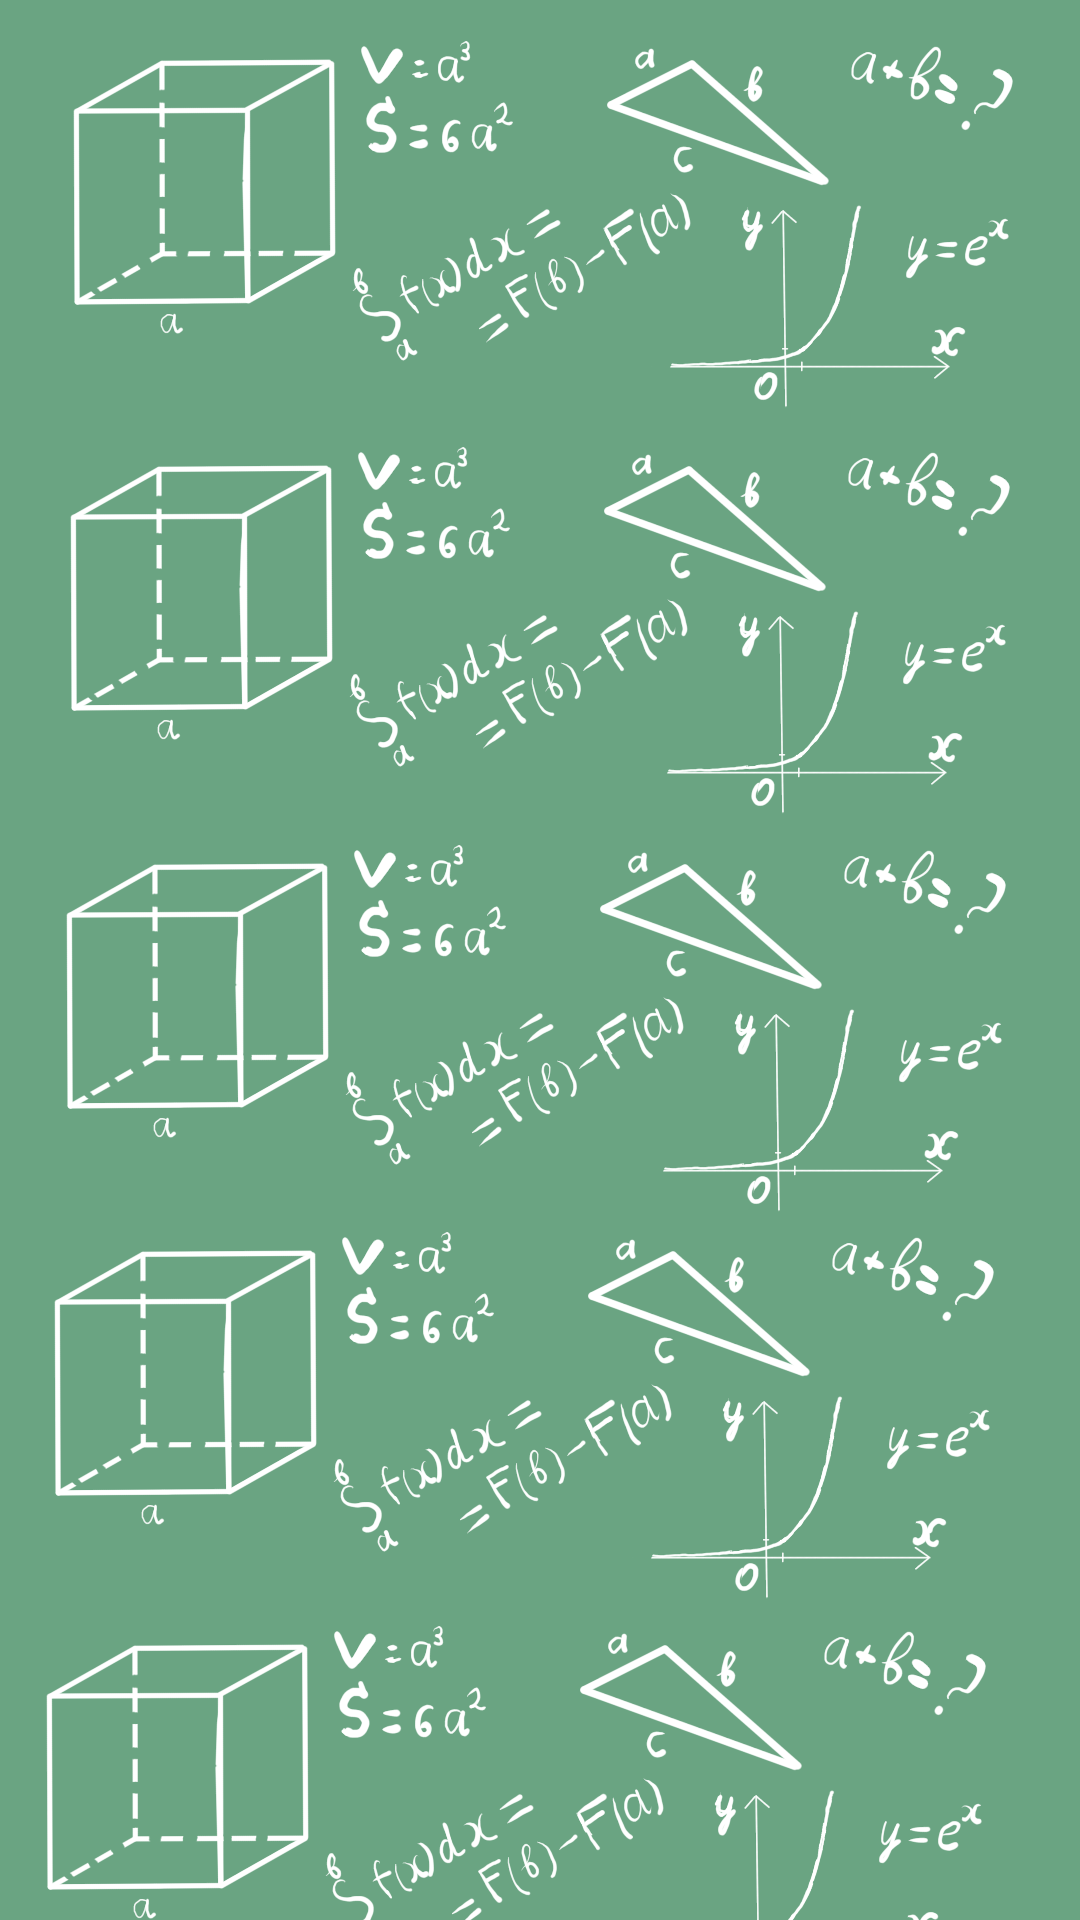 V = a³
S = 6a²
a
a
b
c
a + b = ?
∫ₐᵇ f(x)dx =
= F(b) - F(a)
y
y = eˣ
x
0
V = a³
S = 6a²
a
a
b
c
a + b = ?
∫ₐᵇ f(x)dx =
= F(b) - F(a)
y
y = eˣ
x
0
V = a³
S = 6a²
a
a
b
c
a + b = ?
∫ₐᵇ f(x)dx =
= F(b) - F(a)
y
y = eˣ
x
0
V = a³
S = 6a²
a
a
b
c
a + b = ?
∫ₐᵇ f(x)dx =
= F(b) - F(a)
y
y = eˣ
x
0
V = a³
S = 6a²
a
a
b
c
a + b = ?
∫ᵇ f(x)dx =
= F(b) - F(a)
y
y = eˣ
x